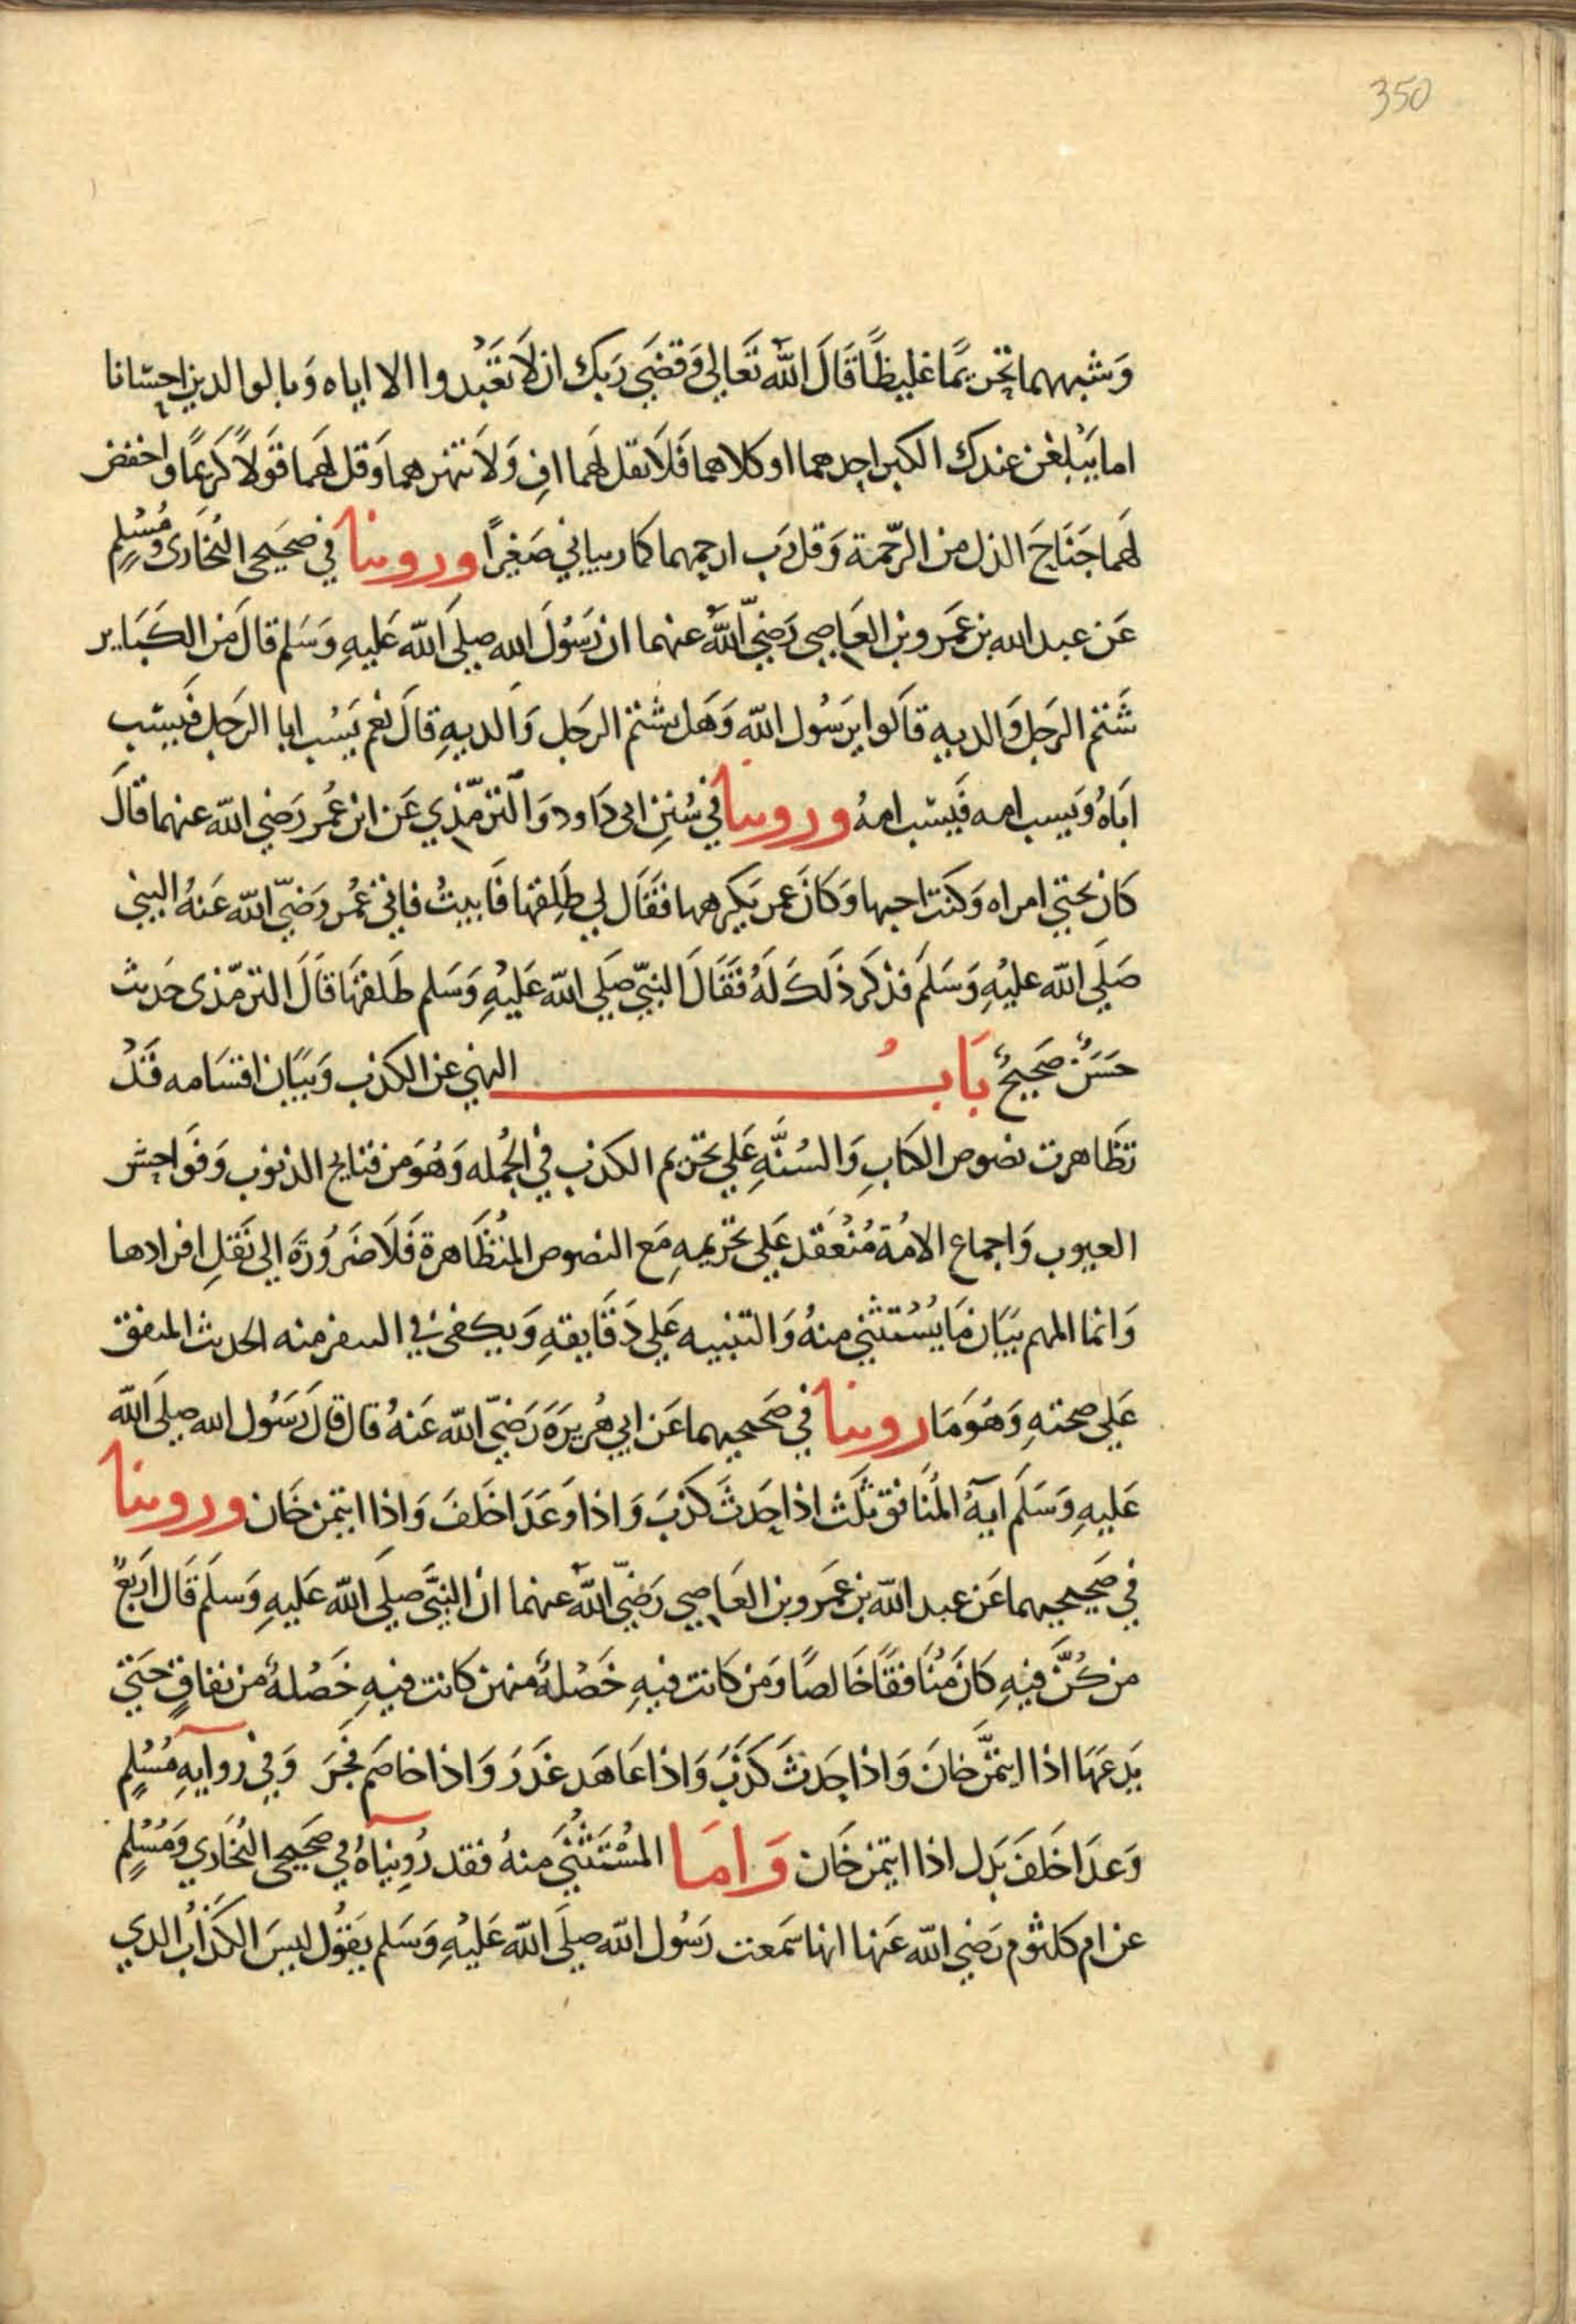 350
وَشبههما تحريمًا غليظًا قَالَ اللّه تَعَالي وَقضَي رَبك ان لَا تَعَبُدوا الا اياه وَبالوالدين احسَانا
اما يَبْلغن عندك الكبر احدهما او كلاهما فَلَا تقل لهَما اف وَلَا تنهرهما وَقل لهَما قَولًا كَريمًا واخفض
لهَما جَنَاحَ الذل من الرّحمَة وَقل رَب ارحمهما كما ربياني صَغيرًا وروينا في صَحيحي البُخَاري وَمُسْلمٍ
عَن عبد الله بن عَمرو بن العَاصِي رَضيَ اللّهُ عنهما ان رَسُولَ الله صلي اللّه عَليهِ وَسَلم قالَ من الكبَاير
شَتم الرجَل وَالديه قالوا يرَسُول اللّه وَهَل يشتم الرجَل وَالديهِ قالَ نعم يَسُب ابا الرجَل فَيسَب
ابَاهُ وَيسب امه فَيسَب امهُ وروينا في سُننِ ابي دَاود وَالترمّذِي عَن ابن عُمر رَضي اللّه عنهما قالَ
كان تحتي امراه وَكنت احبها وَكانَ عمر يَكرهها فقَالَ لي طَلِقها فَابيتُ فاتي عُمر رَضيّ اللّه عَنهُ النبي
صَلي اللّه عليْهِ وَسَلمَ فذكَر ذلَكَ لَهُ فقَالَ النبيّ صَلي اللّه عَليْهِ وَسَلم طَلقهَا قَالَ الترمّذي حَديث
حَسَنٌ صَحيحٌ بَابُ النهي عن الكذب وَبَيَان اقسَامه قَدْ
تظَاهرت نصوص الكتابِ وَالسُنَّةِ عَلي تحريم الكذب في الجُمله وَهُوَ من قبايح الذنوب وَفوَاحش
العيوب وَاجماع الامُة مُنْعَقد عَلي تحَريمهِ مَع النصوص المُتظَاهرة فَلَا ضَرُورَة الي نَقلِ افرادها
وَانما المهم بيَان مَا يُسْتثني منهُ وَالتنبيه عَلي دَقَايقهِ وَيكفي في السفر منه الحديث المتفق
عَلي صحتهِ وَهُوَ مَا روينا في صَحيحيهما عَن ابي هُريرَةَ رَضيّ اللّه عَنهُ قال قالَ رَسُول الله صلي اللّه
عَليهِ وَسَلَم ايَةُ المُنَافق ثَلَث اذا حَدثَ كَذبَ وَاذا وَعَدَ اخَلفَ وَاذا ايتمن خَان وروينا
في صَحيحيهما عَن عبد اللّه بن عَمرو بن العَاصِي رَضيّ اللّهَ عنهما انَ النبيَّ صلي اللّه عَليهِ وَسلَم قَالَ اربَعٌ
من كُنَّ فيهِ كانَ مُنَافقًا خَالصًا وَمن كَانت فيهِ خَصْلةٌ منهن كانت فيهِ خَصْلةٌ من نفاقٍ حَتي
يَدعَهَا اذا ايتمنَّ خانَ وَاذا حَدثَ كَذَبَ وَاذا عَاهَد غَدَرَ وَاذا خاصَم فجَرَ وَفي روايهِ مُسْلمٍ
وَعدَ اخَلفَ بَدل اذا ايتمن خَان وَامَا المُسْتَثنَي منهُ فقد رُوِينَاهُ في صَحيحي البُخَاري وَمُسْلمٍ
عن ام كلثوم رَضي اللّه عَنها انها سَمعت رَسُول اللّه صلَي اللّه عَليْهِ وَسَلم يَقُول ليسَ الكذابُ الذي